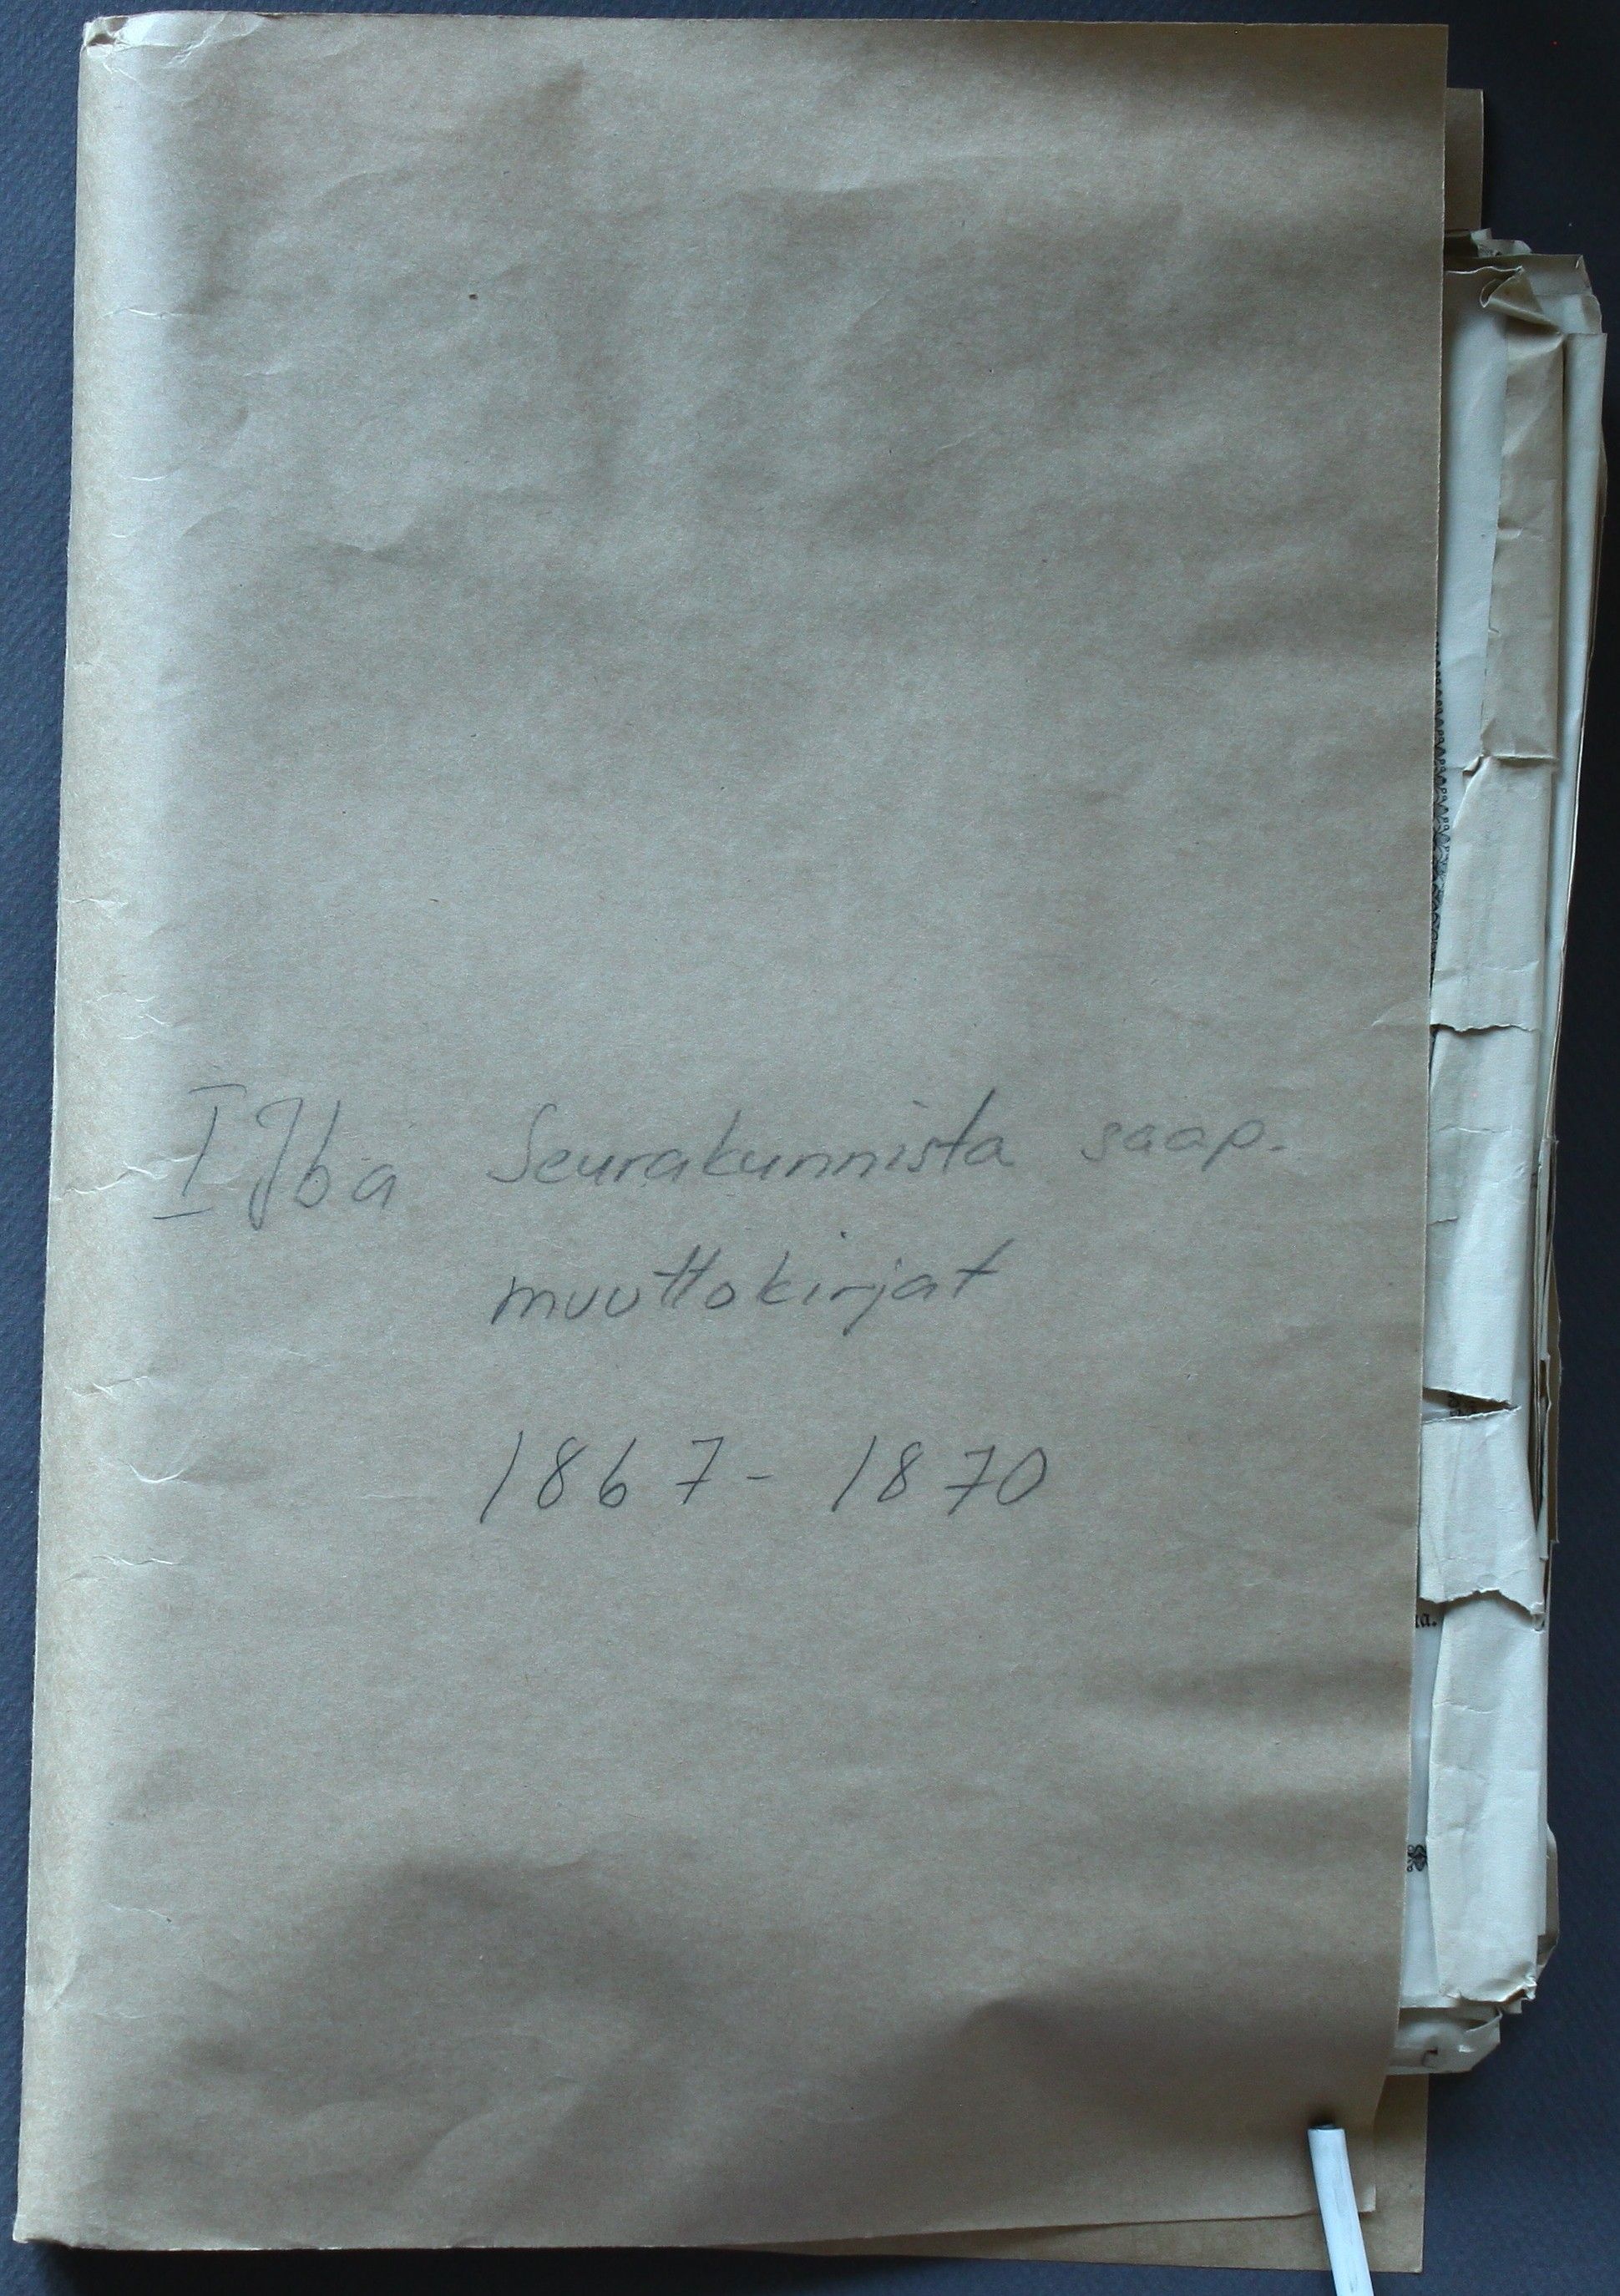 I Jba Seurakunnista saap.
muuttokirjat
1867 - 1870